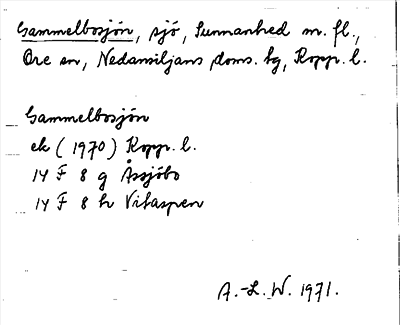 Gammelbosjön, sjö, Sunnanhed m. fl.,
Ore sn, Nedansiljans doms. hg, Kopp. l.
Gammelbosjön
ek (1970) Kopp. l.
14 F 8 g Åssjöbo
14 F 8 h Vitaspen
A.-L. W. 1971.